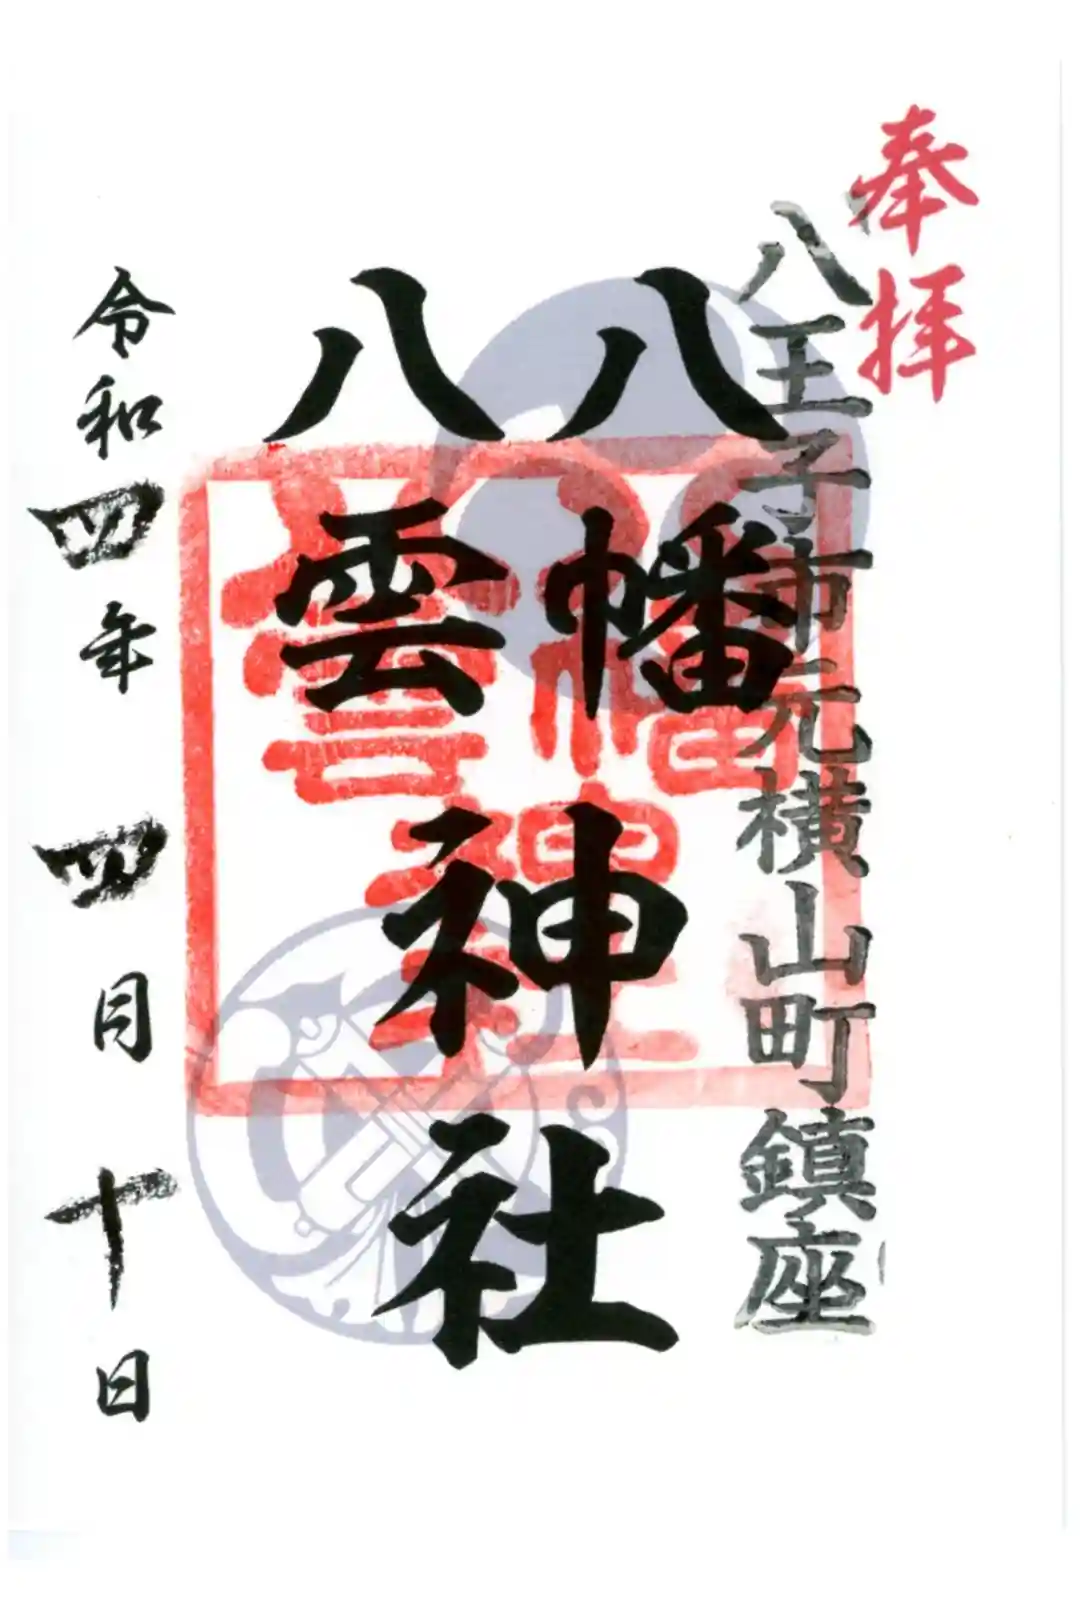 奉拝
八王子市元横山町鎮座
八幡
八雲
神社
令和四年四月十日